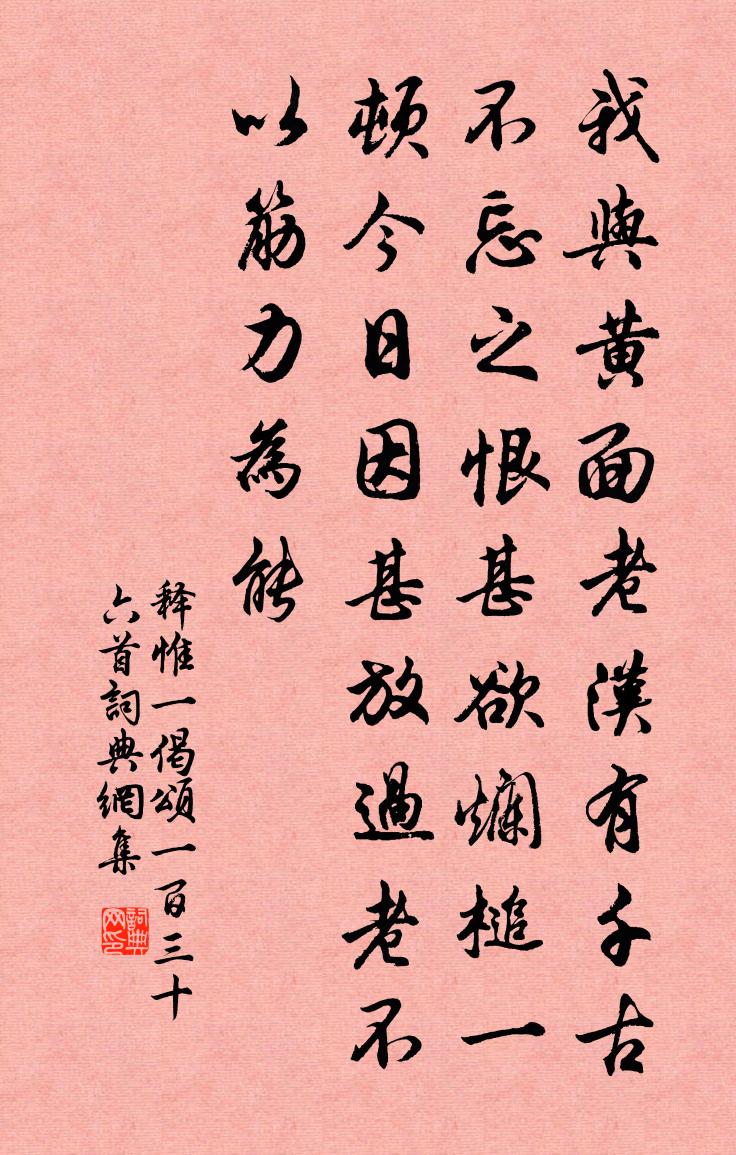 我與黄面老漢有千古
不忘之恨甚欲爛槌一
頓今日因甚放過老不
以筋力為能
释惟一偈頌一百三十
六首詞典網集
詞典網印